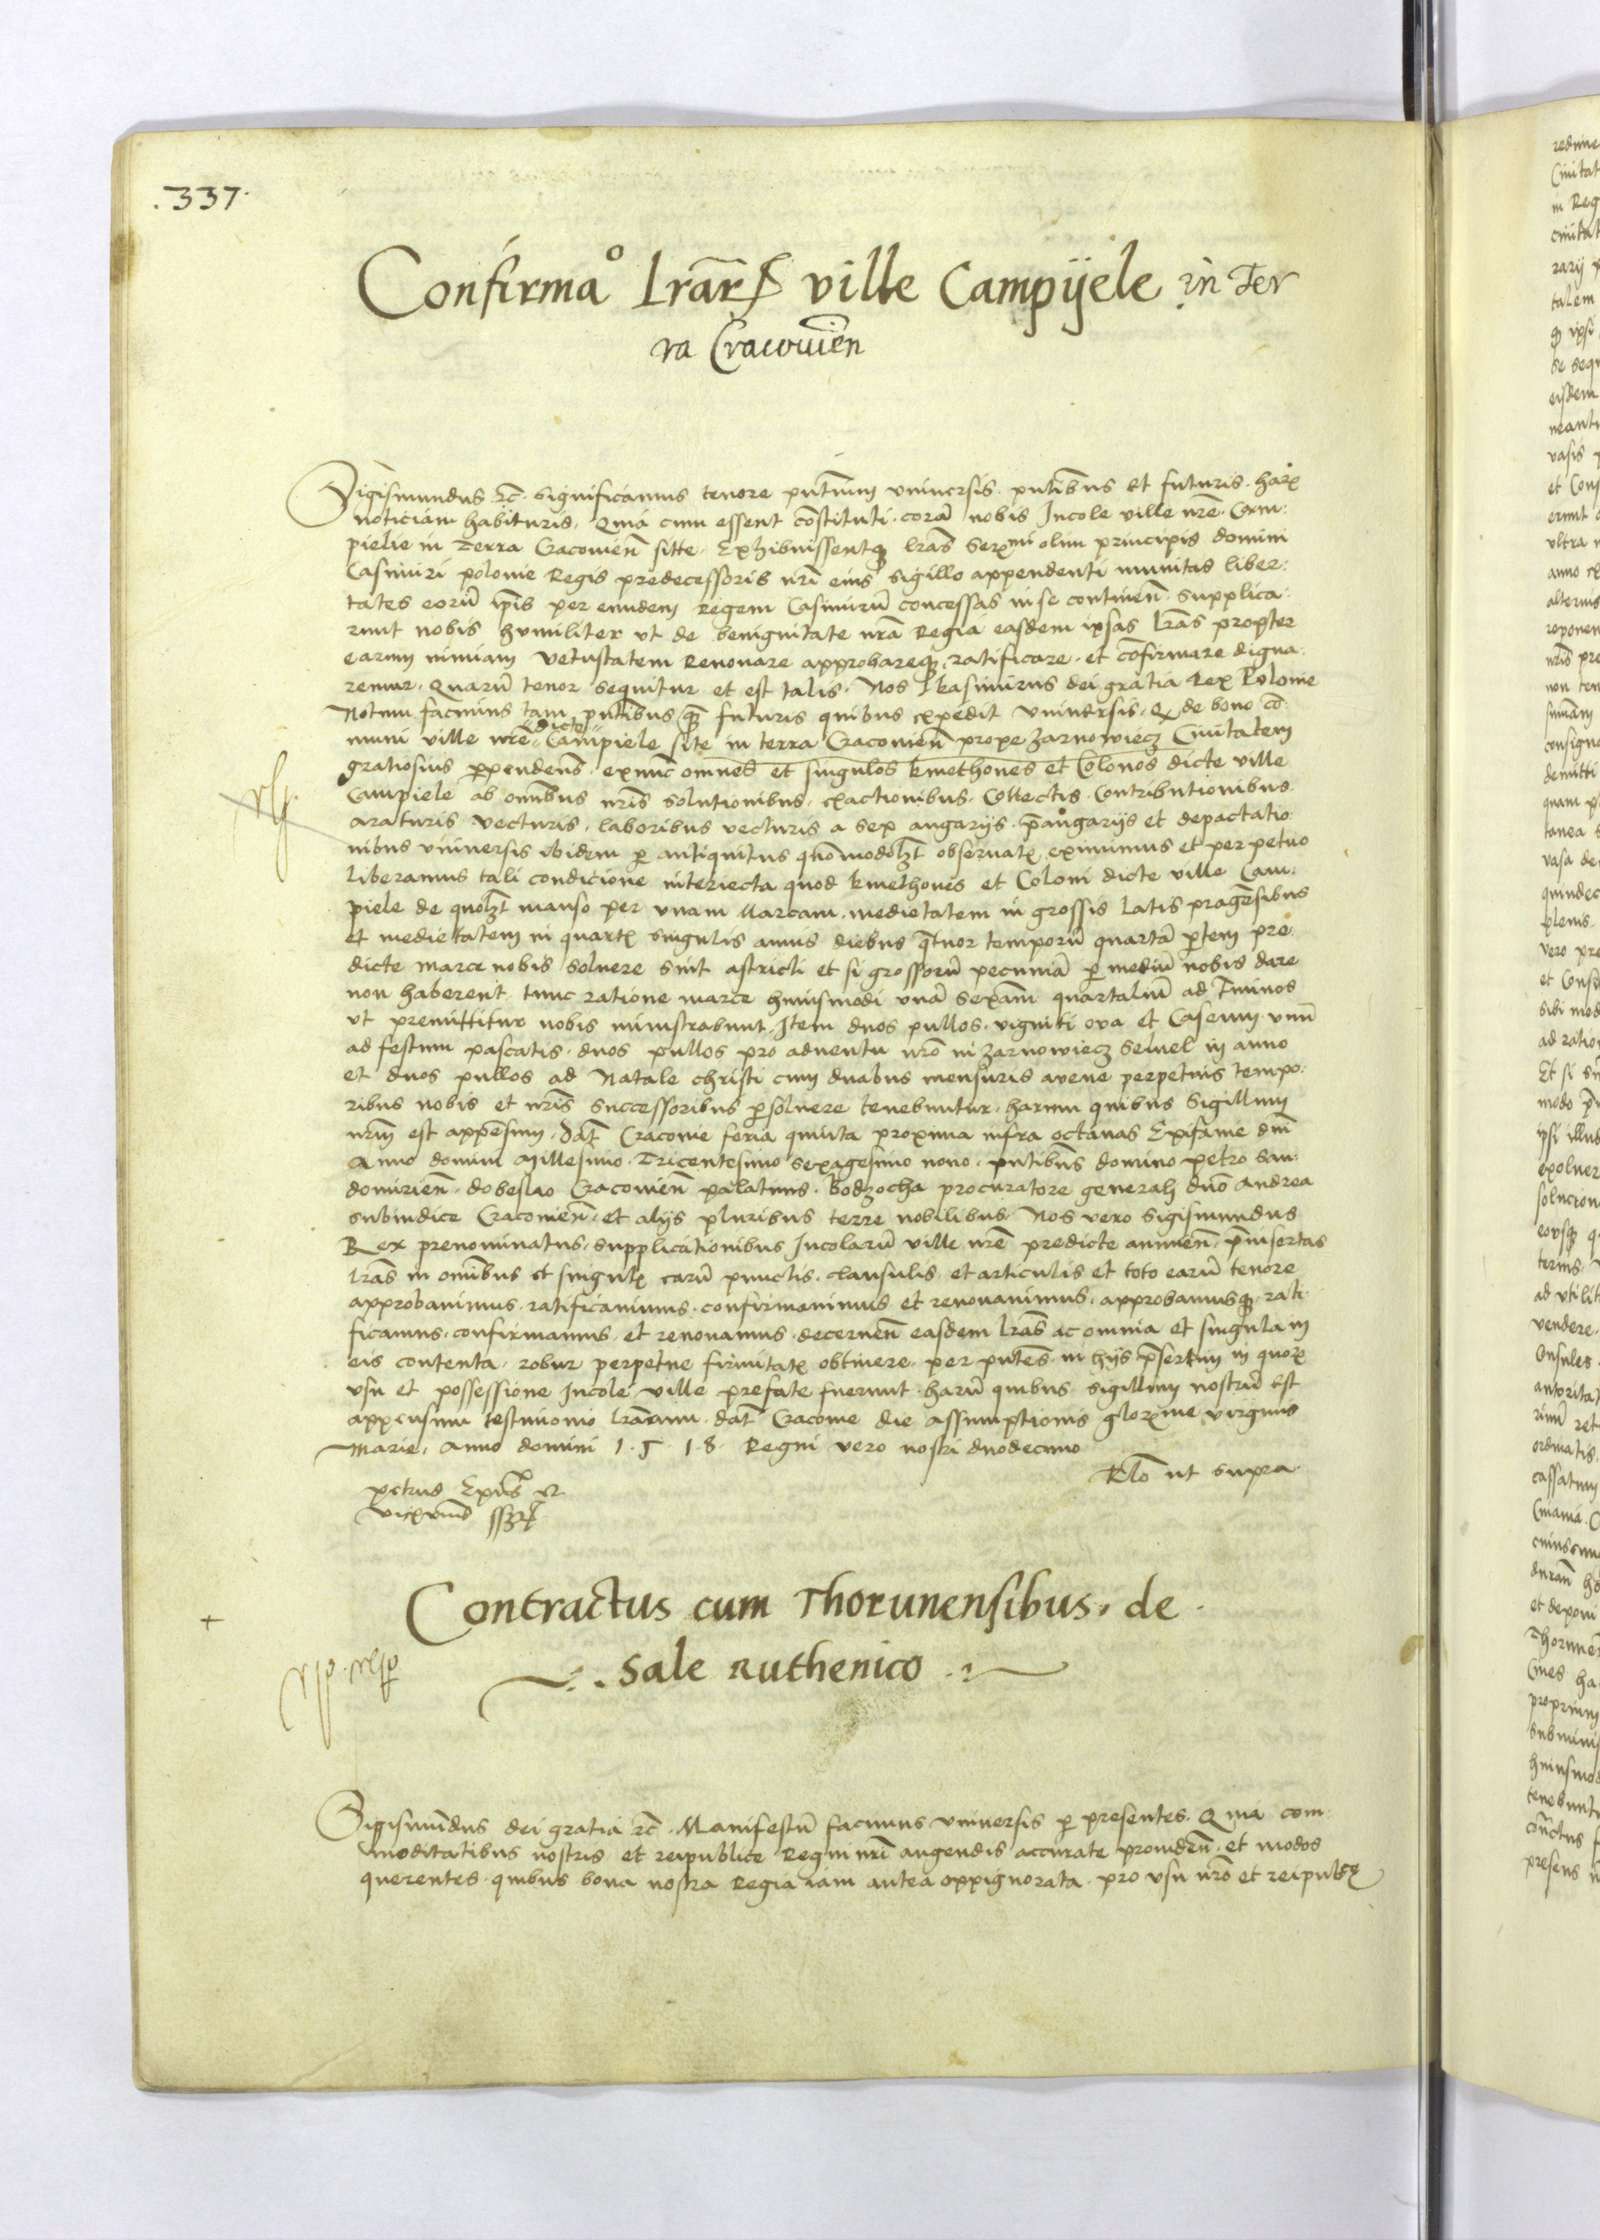 .337.
Confirma° lrar̃ ville Campÿele in Ter
ra Cracovien̄
Sigismundus ꝛc̄. Significamus tenore pn̄tium vniuersis. pn̄tibus et futuris. har̃
noticiam habituris, Quia cum essent cōstituti. corā nobis Incole ville nr̄e. Cam:
pielie in Terra Cracouien̄ sitte. Exhibuissentqꝫ lr̄as Serᵐⁱ olim principis domini
Casimiri polonie Regis predecessoris nr̄i eius sigillo appendenti munitas liber:
tates eorū ip̄is per eundem regem Casimirū concessas in se continen̄. supplica:
runt nobis humiliter vt de benignitate nr̄a Regia easdem ipsas lr̄as propter
earum nimiam vetustatem Renouare approbareqꝫ, ratificare. et cōfirmare digna:
remur. Quarū tenor sequitur et est talis. Nos Kasimirus dei gratia Rex Polonie
Notum facimus tam pn̄tibus qꝫ futuris quibus expedit vniuersis, Qꝫ de bono cō:
muni ville nr̄e dicte Campiele site in terra Cracouien̄ prope Zarnowiecz Ciuitatem
gratiosius ꝑpendens. exnūc omnes et singulos kmethones et Colonos dicte ville
Campiele ab omībus nr̄is solutionibus. exactionibus. Collectis. Contributionibus.
araturis vecturis, laboribus vecturis a sep angarijs. p̄angarijs et depactatio
nibus vniuersis ibidem ꝑ antiquitus quōmodolꝫt obseruatꝭ eximimus et perpetuo
liberamus tali condicione interiecta quod kmethones et Coloni dicte ville Cam:
piele de quolꝫt manso per vnam Marcam. medietatem in grossis latis pragēsibus
et medietatem in quartꝭ singulis annis diebus q̄tuor temporū quartā ꝑtem pre
dicte marce nobis soluere sint astricti et si grossorū pecuniā ꝑ mediū nobis dare
non haberent tunc ratione marce huiusmodi vnā sexam̄ quartaliū ad T̄minos
vt premittitur nobis ministrabunt. Item duos pullos. viginti oua et Caseum vnū
ad festum pascatis. duos pullos pro aduentu nr̄o in Zarnowiecz semel in anno
et duos pullos ad Natale christi cum duabus mensuris auene perpetuis tempo:
ribus nobis et nr̄is successoribus ꝑsoluere tenebuntur. harum quibus Sigillum
nr̄um est appēsum. Dat̄ Cracouie feria quinta proxima infra octauas Epifanie dn̄i
Anno domini Millesimo. Tricentesimo sexagesimo nono. pn̄tibus domino petro San:
domirien̄. dobeslao Cracouien̄ palatinis. Bodzocha procuratore generali dn̄o Andrea
subiudice Cracouien̄. et alijs pluribus terre nobilibus. Nos vero Sigismundus
Rex prenominatus, supplicationibus Incolarū ville nr̄e predicte annuen̄. p̄insertas
lr̄as in omībus et singulꝭ earū punctis. clausulis. et articulis et toto earū tenore
approbauimus. ratificauimus. confirmauimus et renouauimus. approbamusqꝫ. rati:
ficamus. confirmamus. et renouamus. decernen̄ easdem lr̄as ac omnia et singula in
eis contenta. robur perpetue firmitatꝭ obtinere. per pn̄tes. in hijs p̄sertim in quorꝭ
vsu et possessione Incole ville prefate fuerunt. harū quibus sigillum nostrū est
appensum testimonio lr̄arum. dat̄ Cracouie die assumptionis glor̄me virginis
Marie. Anno domini 1. 5. 1. 8. Regni vero nostri duodecimo
Rlō ut supra.
petrus Ep̄us et
vicxrius sszt
Contractus cum Thorunensibus. de.
Sale Ruthenico
Sigismūdus dei gratia ꝛc̄. Manifestū facimus vniuersis ꝑ presentes. Quia com:
moditatibus nostris et reipublice Regni nr̄i augendis accurate prouiden̄. et modos
querentes. quibus bona nostra Regia iam antea oppignorata. pro vsu nr̄o et reipubce